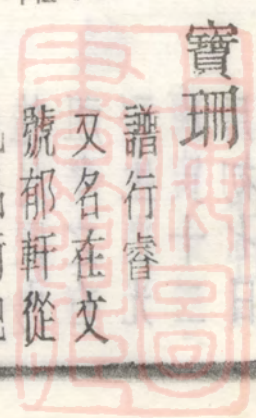 寶珊
譜行睿
又名在文
號郁軒從